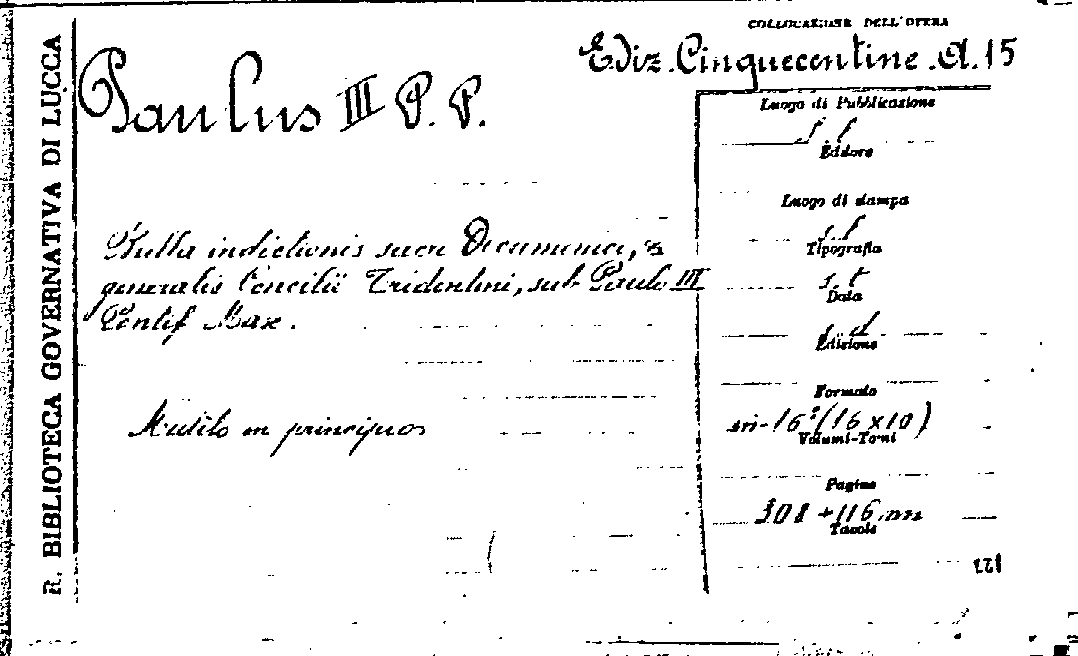 R. BIBLIOTECA GOVERNATIVA DI LUCCA
COLLOCAZIONE DELL'OPERA
Ediz. Cinquecentine. A. 15
Paulus III P. P.
Bulla indictionis sacri Oecumenici, &
generalis Concilii Tridentini, sub Paulo III
Pontif Max.
Mutilo in principio
Luogo di Pubblicazione
Editore
Luogo di stampa
Tipografia
s. t
Data
Edizione
Formato
in-16º (16 x 10)
Volumi-Tomi
Pagine
308 + 116 nn
Tavole